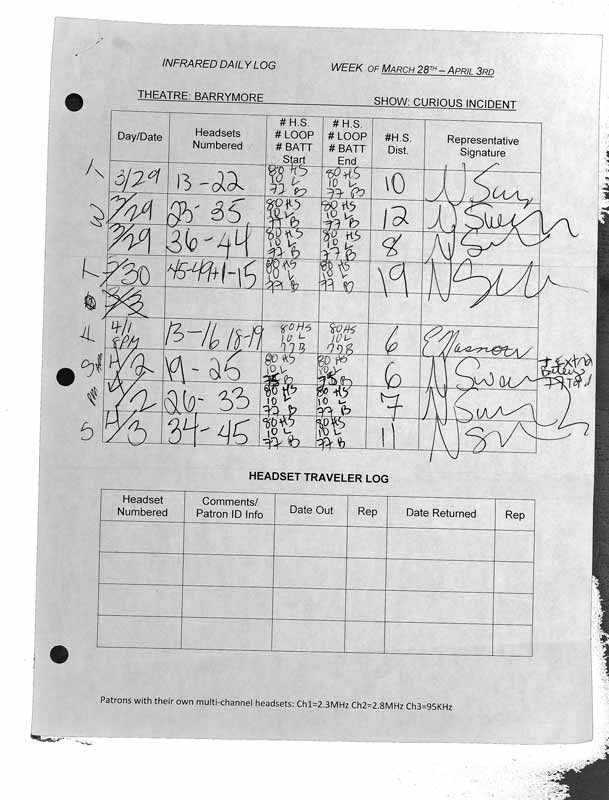 INFRARED DAILY LOG WEEK OF MARCH 28TH – APRIL 3RD
THEATRE: BARRYMORE SHOW: CURIOUS INCIDENT
Day/Date Headsets Numbered # H.S. # LOOP # BATT Start # H.S. # LOOP # BATT End #H.S. Dist. Representative Signature
T 3/29 13-22 80 HS 10 L 77 B 80 HS 10 L 77 B 10
W 3/29 23-35 80 HS 10 L 77 B 80 HS 10 L 77 B 12
3/29 36-44 80 HS 10 L 77 B 80 HS 10 L 77 B 8
T 3/30 45-49+1-15 80 HS 10 L 77 B 80 HS 10 L 77 B 19
F 4/1 8PM 13-16 18-19 80 HS 10 L 77 B 80 HS 10 L 77 B 6
S 4/2 19-25 80 HS 10 L B 80 HS 10 L B 6 N Swan + Extra
4/2 26-33 80 HS 10 L 77 B 80 HS 10 L 77 B 7
S 4/3 34-45 80 HS 10 L 77 B 80 HS 10 L 77 B 11
HEADSET TRAVELER LOG
Headset Numbered Comments/ Patron ID Info Date Out Rep Date Returned Rep
Patrons with their own multi-channel headsets: Ch1=2.3MHz Ch2=2.8MHz Ch3=95KHz